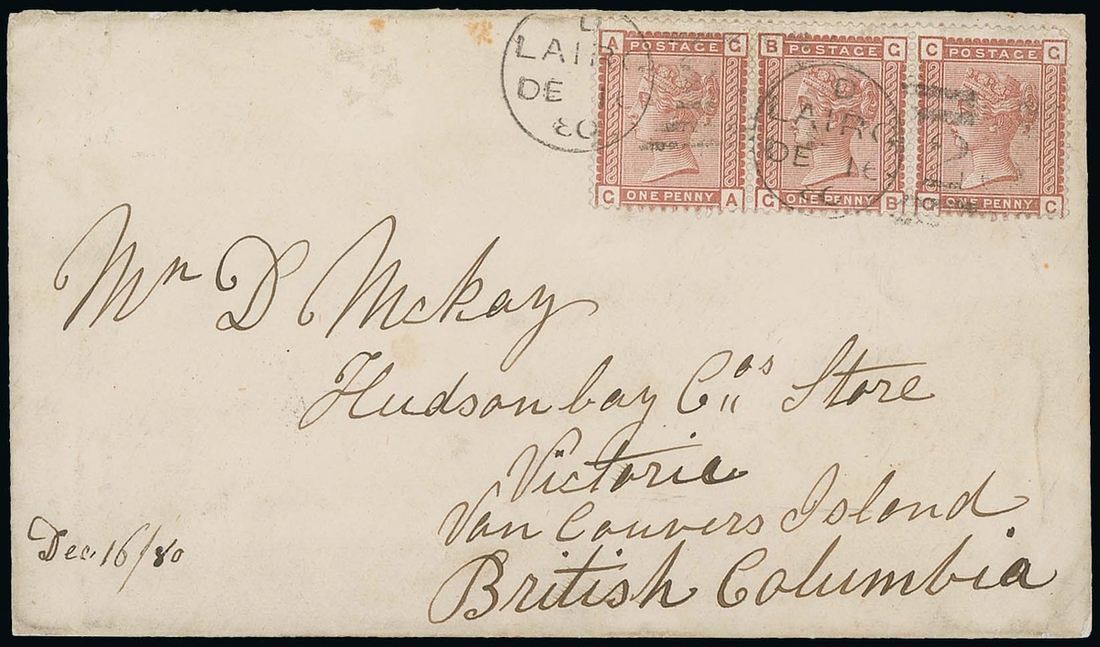 A POSTAGE G B G C G
LAIRG
DE
80
D
LAIRG
DE 16
80
G ONE PENNY A G ONE PENNY B G ONE PENNY C
Mr D Mckay
Hudson bay Co's Store
Victoria
Van Couvers Island
British Columbia
Dec 16/80